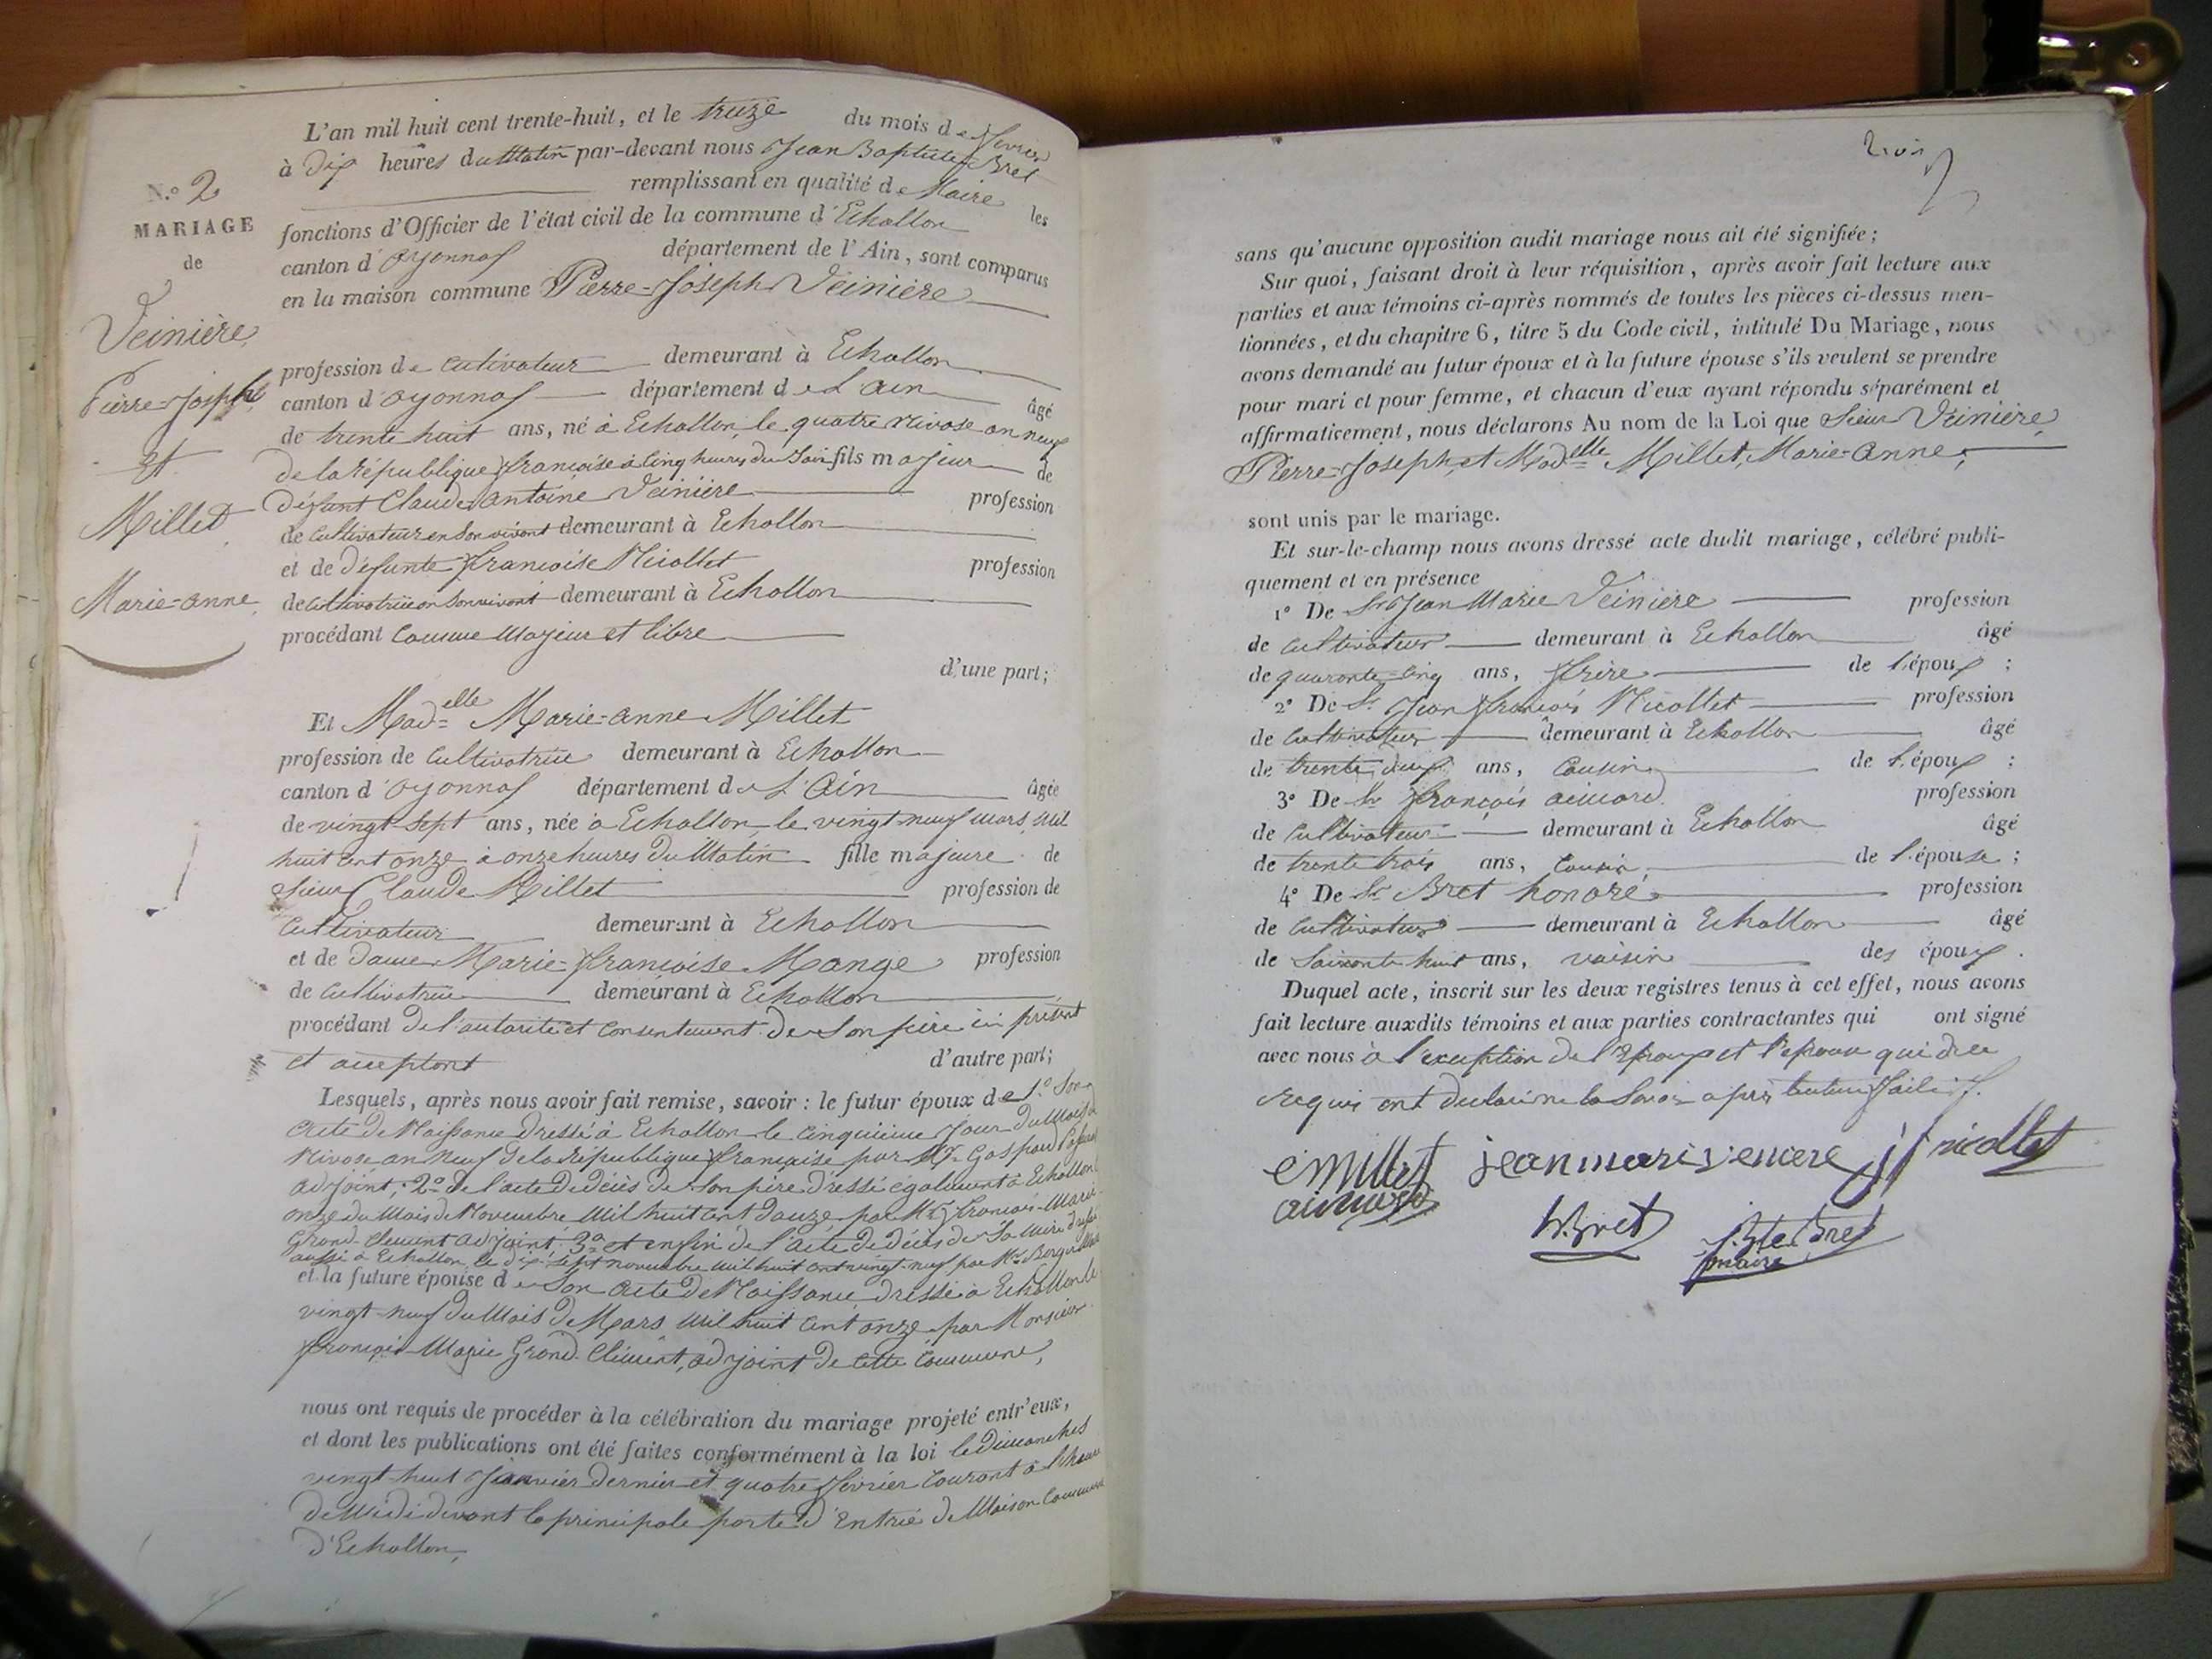 N.º 2
MARIAGE
de
Veinière
Pierre-Joseph,
et
Millet
Marie-anne,
L'an mil huit cent trente-huit, et le treize du mois de février
à dix heures du Matin par-devant nous Jean Baptiste Bret
remplissant en qualité de Maire les
fonctions d'Officier de l'état civil de la commune d'Echallon
canton d'oyonnax département de l'Ain, sont comparus
en la maison commune Pierre-Joseph Veinière
profession de cultivateur demeurant à Echallon
canton d'oyonnax département de L'ain âgé
de trente huit ans, né à Echallon, le quatre nivose an neuf
de la république française à cinq heures du soir fils majeur de
défunt Claude antoine Veinière profession
de cultivateur en son vivant demeurant à Echallon
et de défunte françoise Nicollet profession
de cultivatrice en son vivant demeurant à Echallon
procédant comme majeur et libre
d'une part;
Et Mad.elle Marie-anne Millet
profession de cultivatrice demeurant à Echallon
canton d'oyonnax département de L'Ain âgée
de vingt-sept ans, née à Echallon le vingt-neuf mars mil
huit cent onze à onze heures du Matin fille majeure de
Sieur Claude Millet profession de
cultivateur demeurant à Echallon
et de dame Marie-françoise Mange profession
de cultivatrice demeurant à Echallon
procédant de l'autorité et consentement de son père ici présent
et acceptant d'autre part;
Lesquels, après nous avoir fait remise, savoir : le futur époux de 1.º Son
acte de Naissance dressé à Echallon le cinquième jour du mois de
Nivose an Neuf de la république française par Mr. Gaspard
adjoint; 2º de l'acte de décès de son père dressé également à Echallon
onze du mois de Novembre mil huit cent douze par Mr. françois-Marie
Grand-Clément adjoint; 3º et enfin de l'acte de décès de sa mère dressé
aussi à Echallon le dix-sept novembre mil huit cent vingt-neuf par Mr.
et la future épouse de Son acte de Naissance dressé à Echallon le
vingt-neuf du Mois de Mars mil huit cent onze par Monsieur
françois-Marie Grand-Clément, adjoint de cette commune,
nous ont requis de procéder à la célébration du mariage projeté entr'eux,
et dont les publications ont été faites conformément à la loi le dimanches
vingt-huit Janvier dernier et quatre février courant à l'heure
de Midi devant la principale porte d'Entrée de Maison Commune
d'Echallon,
sans qu'aucune opposition audit mariage nous ait été signifiée;
Sur quoi, faisant droit à leur réquisition, après avoir fait lecture aux
parties et aux témoins ci-après nommés de toutes les pièces ci-dessus men-
tionnées, et du chapitre 6, titre 5 du Code civil, intitulé Du Mariage, nous
avons demandé au futur époux et à la future épouse s'ils veulent se prendre
pour mari et pour femme, et chacun d'eux ayant répondu séparément et
affirmativement, nous déclarons Au nom de la Loi que Sieur Veinière
Pierre-Joseph, et Mad.elle Millet, Marie-anne,
sont unis par le mariage.
Et sur-le-champ nous avons dressé acte dudit mariage, célébré publi-
quement et en présence
1º De Sr. Jean Marie Veinière profession
de cultivateur demeurant à Echallon âgé
de quarante-cinq ans, frère de l'époux ;
2º De Sr. Jean françois Nicollet profession
de cultivateur demeurant à Echallon âgé
de trente deux ans, cousin de l'époux ;
3º De Sr. françois aimard profession
de cultivateur demeurant à Echallon âgé
de trente trois ans, cousin, de l'épouse ;
4º De Sr. Bret honoré profession
de cultivateur demeurant à Echallon âgé
de Soixante huit ans, voisin des époux .
Duquel acte, inscrit sur les deux registres tenus à cet effet, nous avons
fait lecture auxdits témoins et aux parties contractantes qui ont signé
avec nous à l'exception de l'Epoux et l'epouse qui de ce
requis ont declaré ne le savoir apres lecture faite
C Millet jean mari veniere jf nicollet
aimard
h. Bret J. Bte Bret
maire